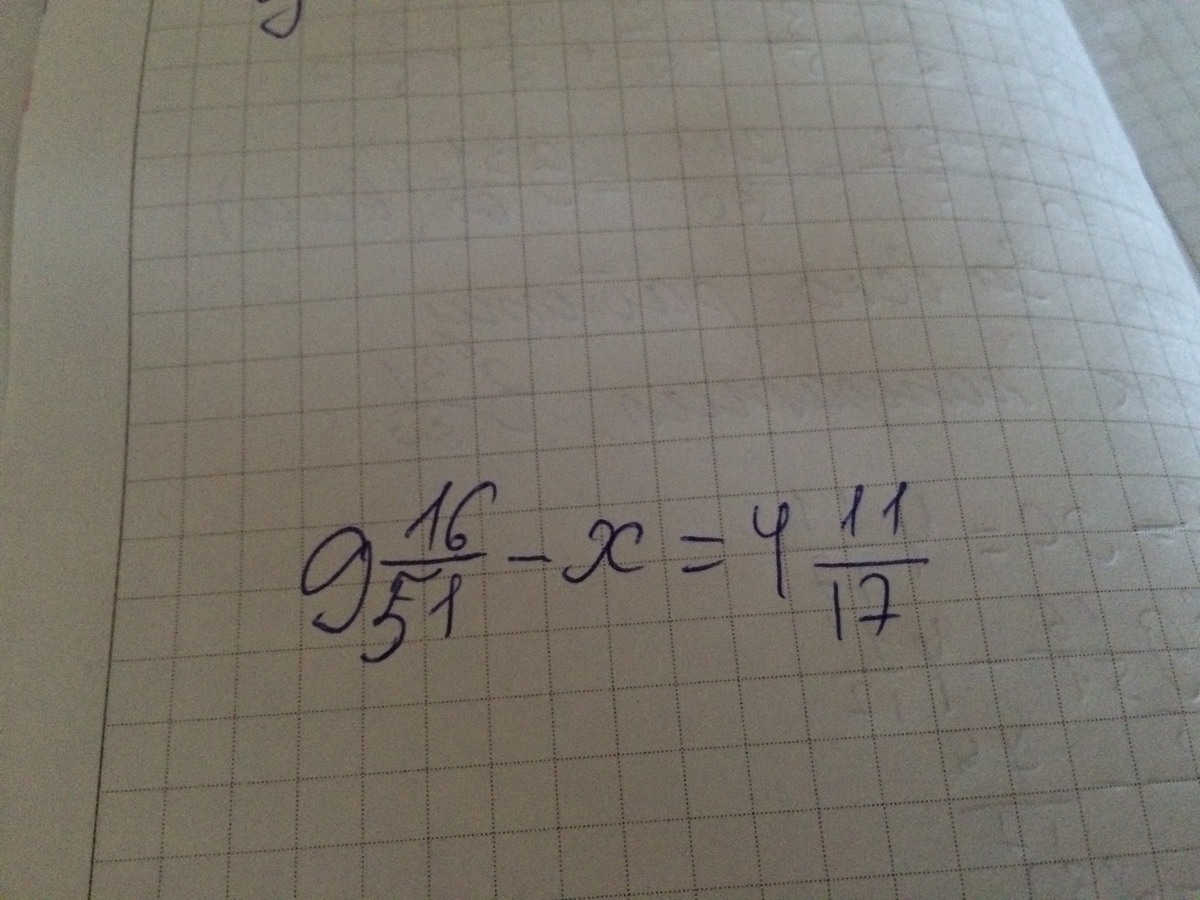 9 16/51 - x = 4 11/17